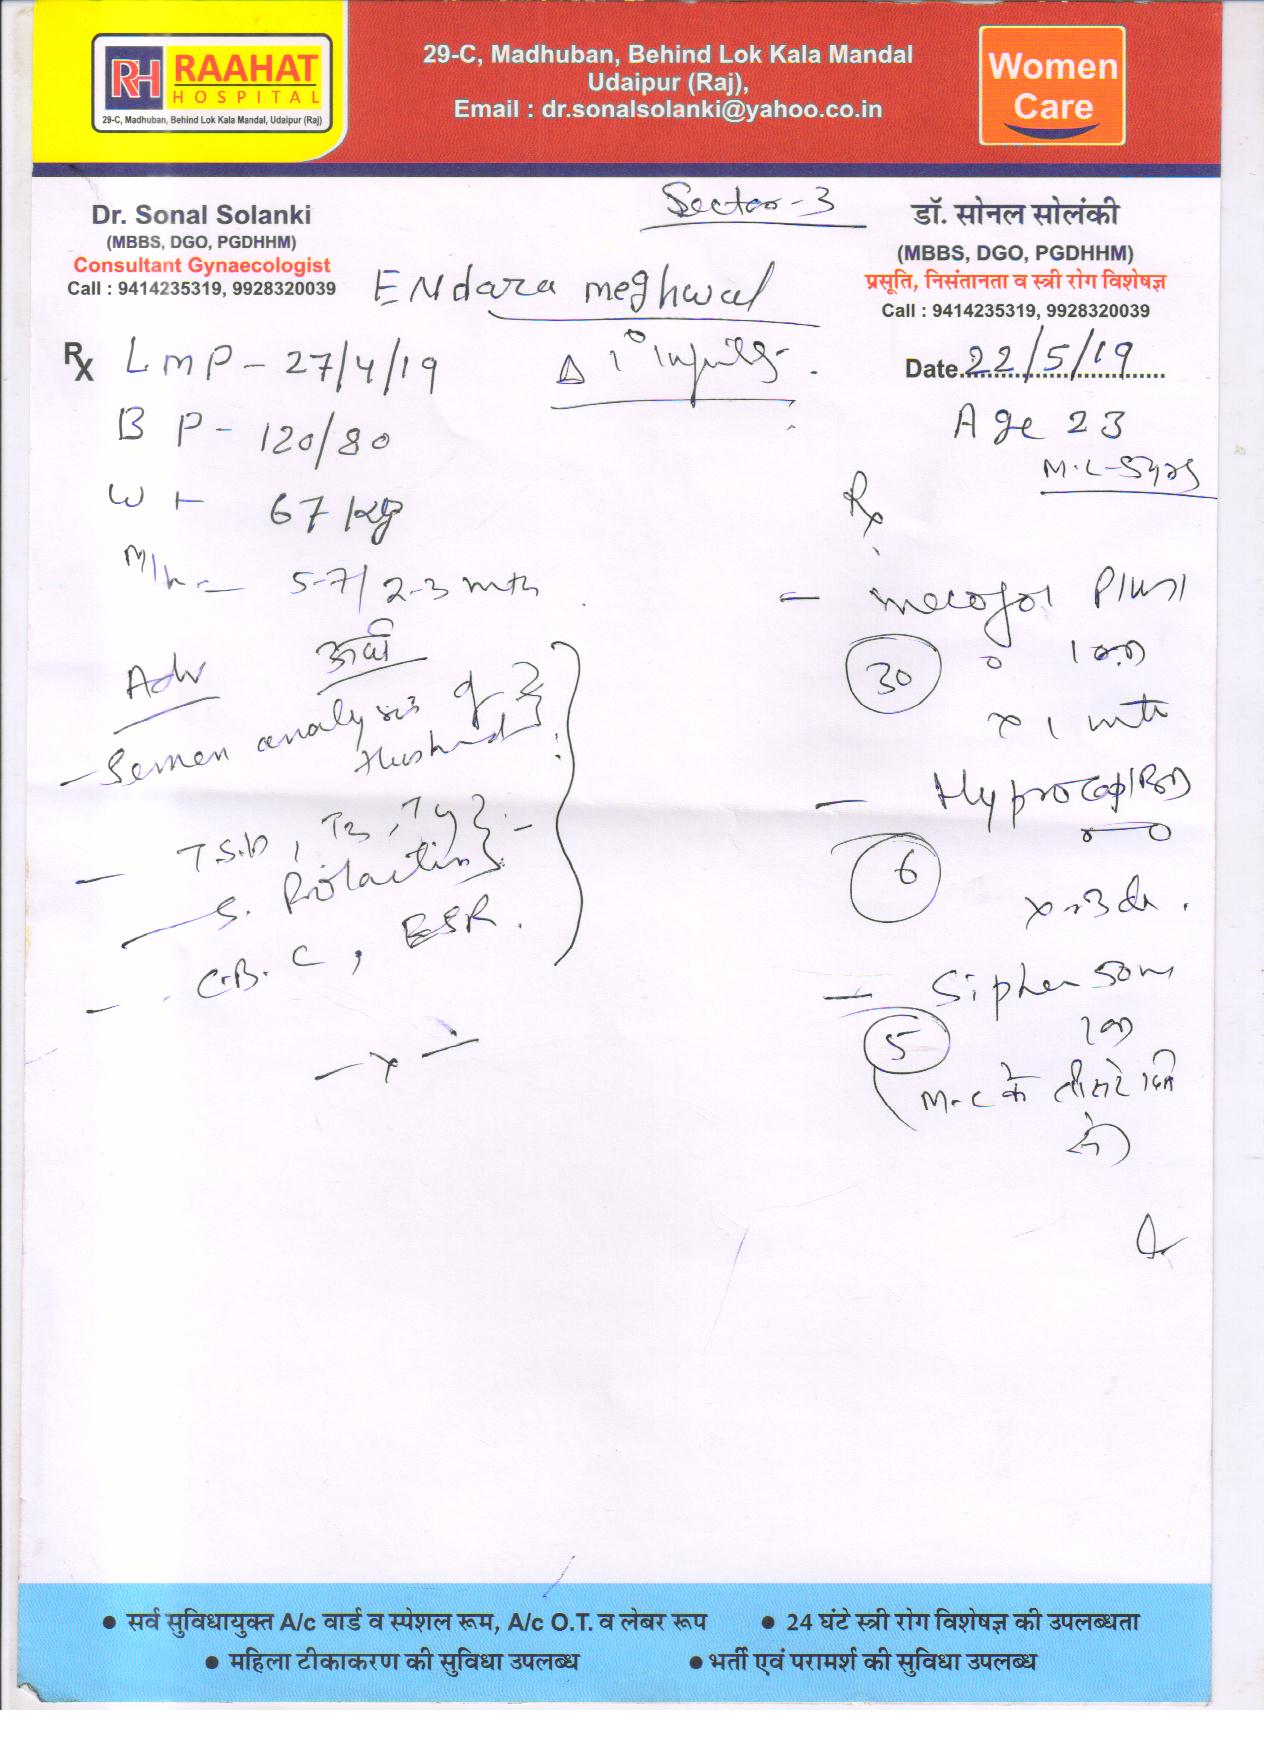 RH RAAHAT
HOSPITAL
29-C, Madhuban, Behind Lok Kala Mandal, Udaipur (Raj)
29-C, Madhuban, Behind Lok Kala Mandal
Udaipur (Raj),
Email : dr.sonalsolanki@yahoo.co.in
Women
Care
Dr. Sonal Solanki
(MBBS, DGO, PGDHHM)
Consultant Gynaecologist
Call : 9414235319, 9928320039
Sector-3
डॉ. सोनल सोलंकी
(MBBS, DGO, PGDHHM)
प्रसूति, निसंतानता व स्त्री रोग विशेषज्ञ
Call : 9414235319, 9928320039
ENdara meghwal
Date 22/5/19
Rx LMP - 27/4/19
Δ 1°
BP - 120/80
Age 23
Wt 67 kg
M.L-5yrs
M/h - 5-7/2-3 mth
Rx
Adv
- Semen analysis of
Husband
- T.S.H, T3, T4
- S. Prolactin
- C.B.C, ESR.
- x -
- mecofol Plus
30 1 OD
x 1 mth
- Hyprocap/BD
6
x 3 d
- Siphen 50m
5 1 OD
M.C के तीसरे दिन
से
● सर्व सुविधायुक्त A/c वार्ड व स्पेशल रूम, A/c O.T. व लेबर रूप
● 24 घंटे स्त्री रोग विशेषज्ञ की उपलब्धता
● महिला टीकाकरण की सुविधा उपलब्ध
● भर्ती एवं परामर्श की सुविधा उपलब्ध